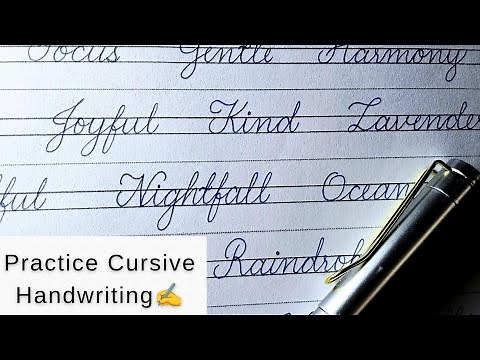 Focus Gentle Harmony
Joyful Kind Lavende
ful Nightfall Ocean
Raindrop
Practice Cursive
Handwriting✍️